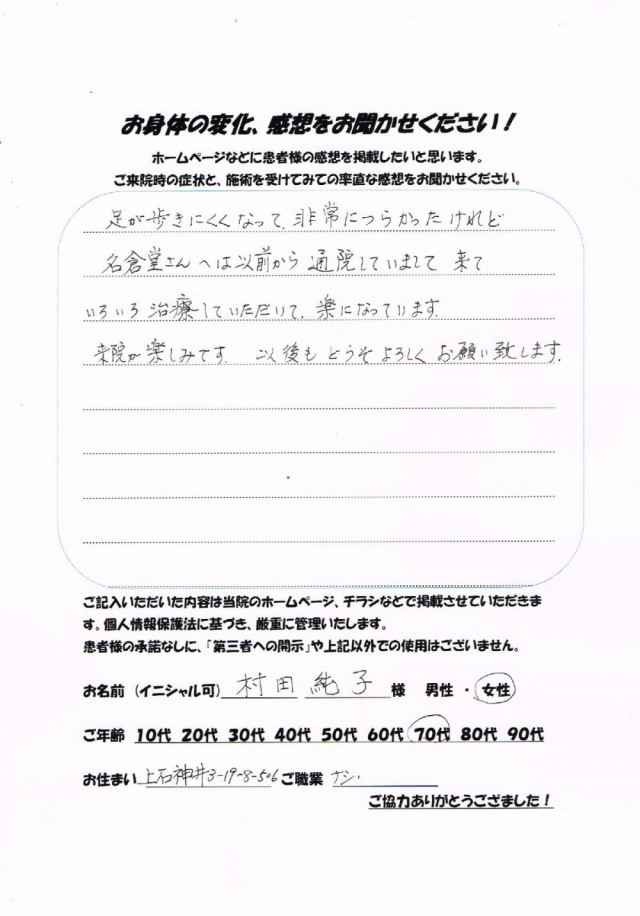 お身体の変化、感想をお聞かせください！
ホームページなどに患者様の感想を掲載したいと思います。
ご来院時の症状と、施術を受けてみての率直な感想をお聞かせください。
足が歩きにくくなって、非常につらかったけれど
名倉堂さんへは以前から通院していまして来て
いろいろ治療していただいて、楽になっています。
来院が楽しみです。以後もどうぞよろしくお願い致します。
ご記入いただいた内容は当院のホームページ、チラシなどで掲載させていただきま
す。個人情報保護法に基づき、厳重に管理いたします。
患者様の承諾なしに、「第三者への開示」や上記以外での使用はございません。
お名前（イニシャル可）村田 純子 様 男性・女性
ご年齢 10代 20代 30代 40代 50代 60代 70代 80代 90代
お住まい 上石神井3-19-8-506 ご職業 ナシ
ご協力ありがとうござました！